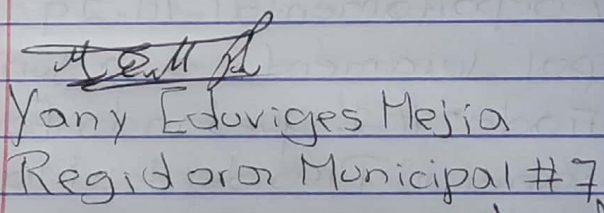 Yany Eduviges Mejia
Regidora Municipal #7